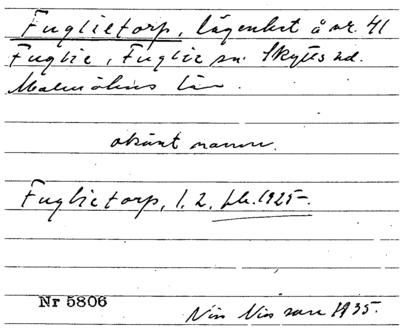 Fuglietorp, lägenhet å nr. 41
Fuglie, Fuglie sn. Skytts hd.
Malmöhus län.
okänt namn.
Fuglietorp, 1. 2. 1925.
Nr 5806
Nils Nilsson 1935.